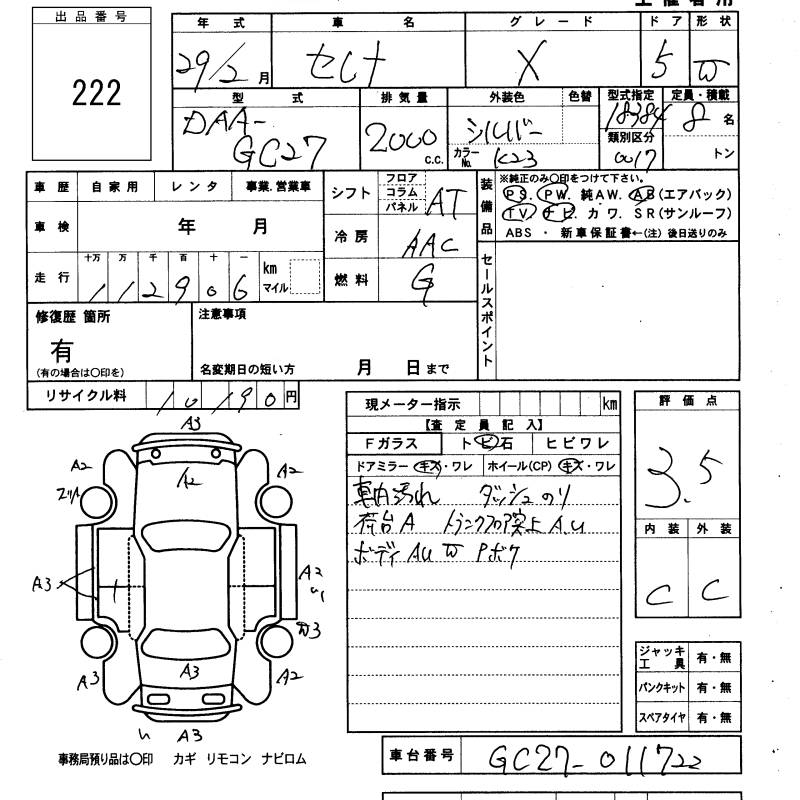 出品番号
222
年式 車名 グレード ドア 形状
29/2月 セレナ X 5 W
型式 排気量 外装色 色替 型式指定 定員・積載
DAA-GC27 2000 c.c. シルバー 18384 8 名
カラーNo. K23 類別区分 0017 トン
車歴 自家用 レンタ 事業.営業車
シフト フロア コラム パネル AT
車検 年 月
冷房 AAC
走行 十万 万 千 百 十 一
112906 km マイル
燃料 G
装備品
※純正のみ〇印をつけて下さい。
PS. PW. 純AW. AB(エアバック)
TV. ナビ. カワ. SR(サンルーフ)
ABS ・ 新車保証書←(注) 後日送りのみ
セールスポイント
修復歴 箇所
有
(有の場合は〇印を)
注意事項
名変期日の短い方 月 日まで
リサイクル料 10190円
現メーター指示 km
【査定員記入】
Fガラス トビ石 ヒビワレ
ドアミラー キズ・ワレ ホイール(CP) キズ・ワレ
車内汚れ ダッシュのり
荷台A トランクフロア突上 A.U
ボディAU W Pボケ
評価点
3.5
内装 外装
C C
ジャッキ工具 有・無
パンクキット 有・無
スペアタイヤ 有・無
A3
A2 A2 A2
A3 A2
A3
A3 A3 A2
A3
事務局預り品は〇印 カギ リモコン ナビロム
車台番号 GC27-011722